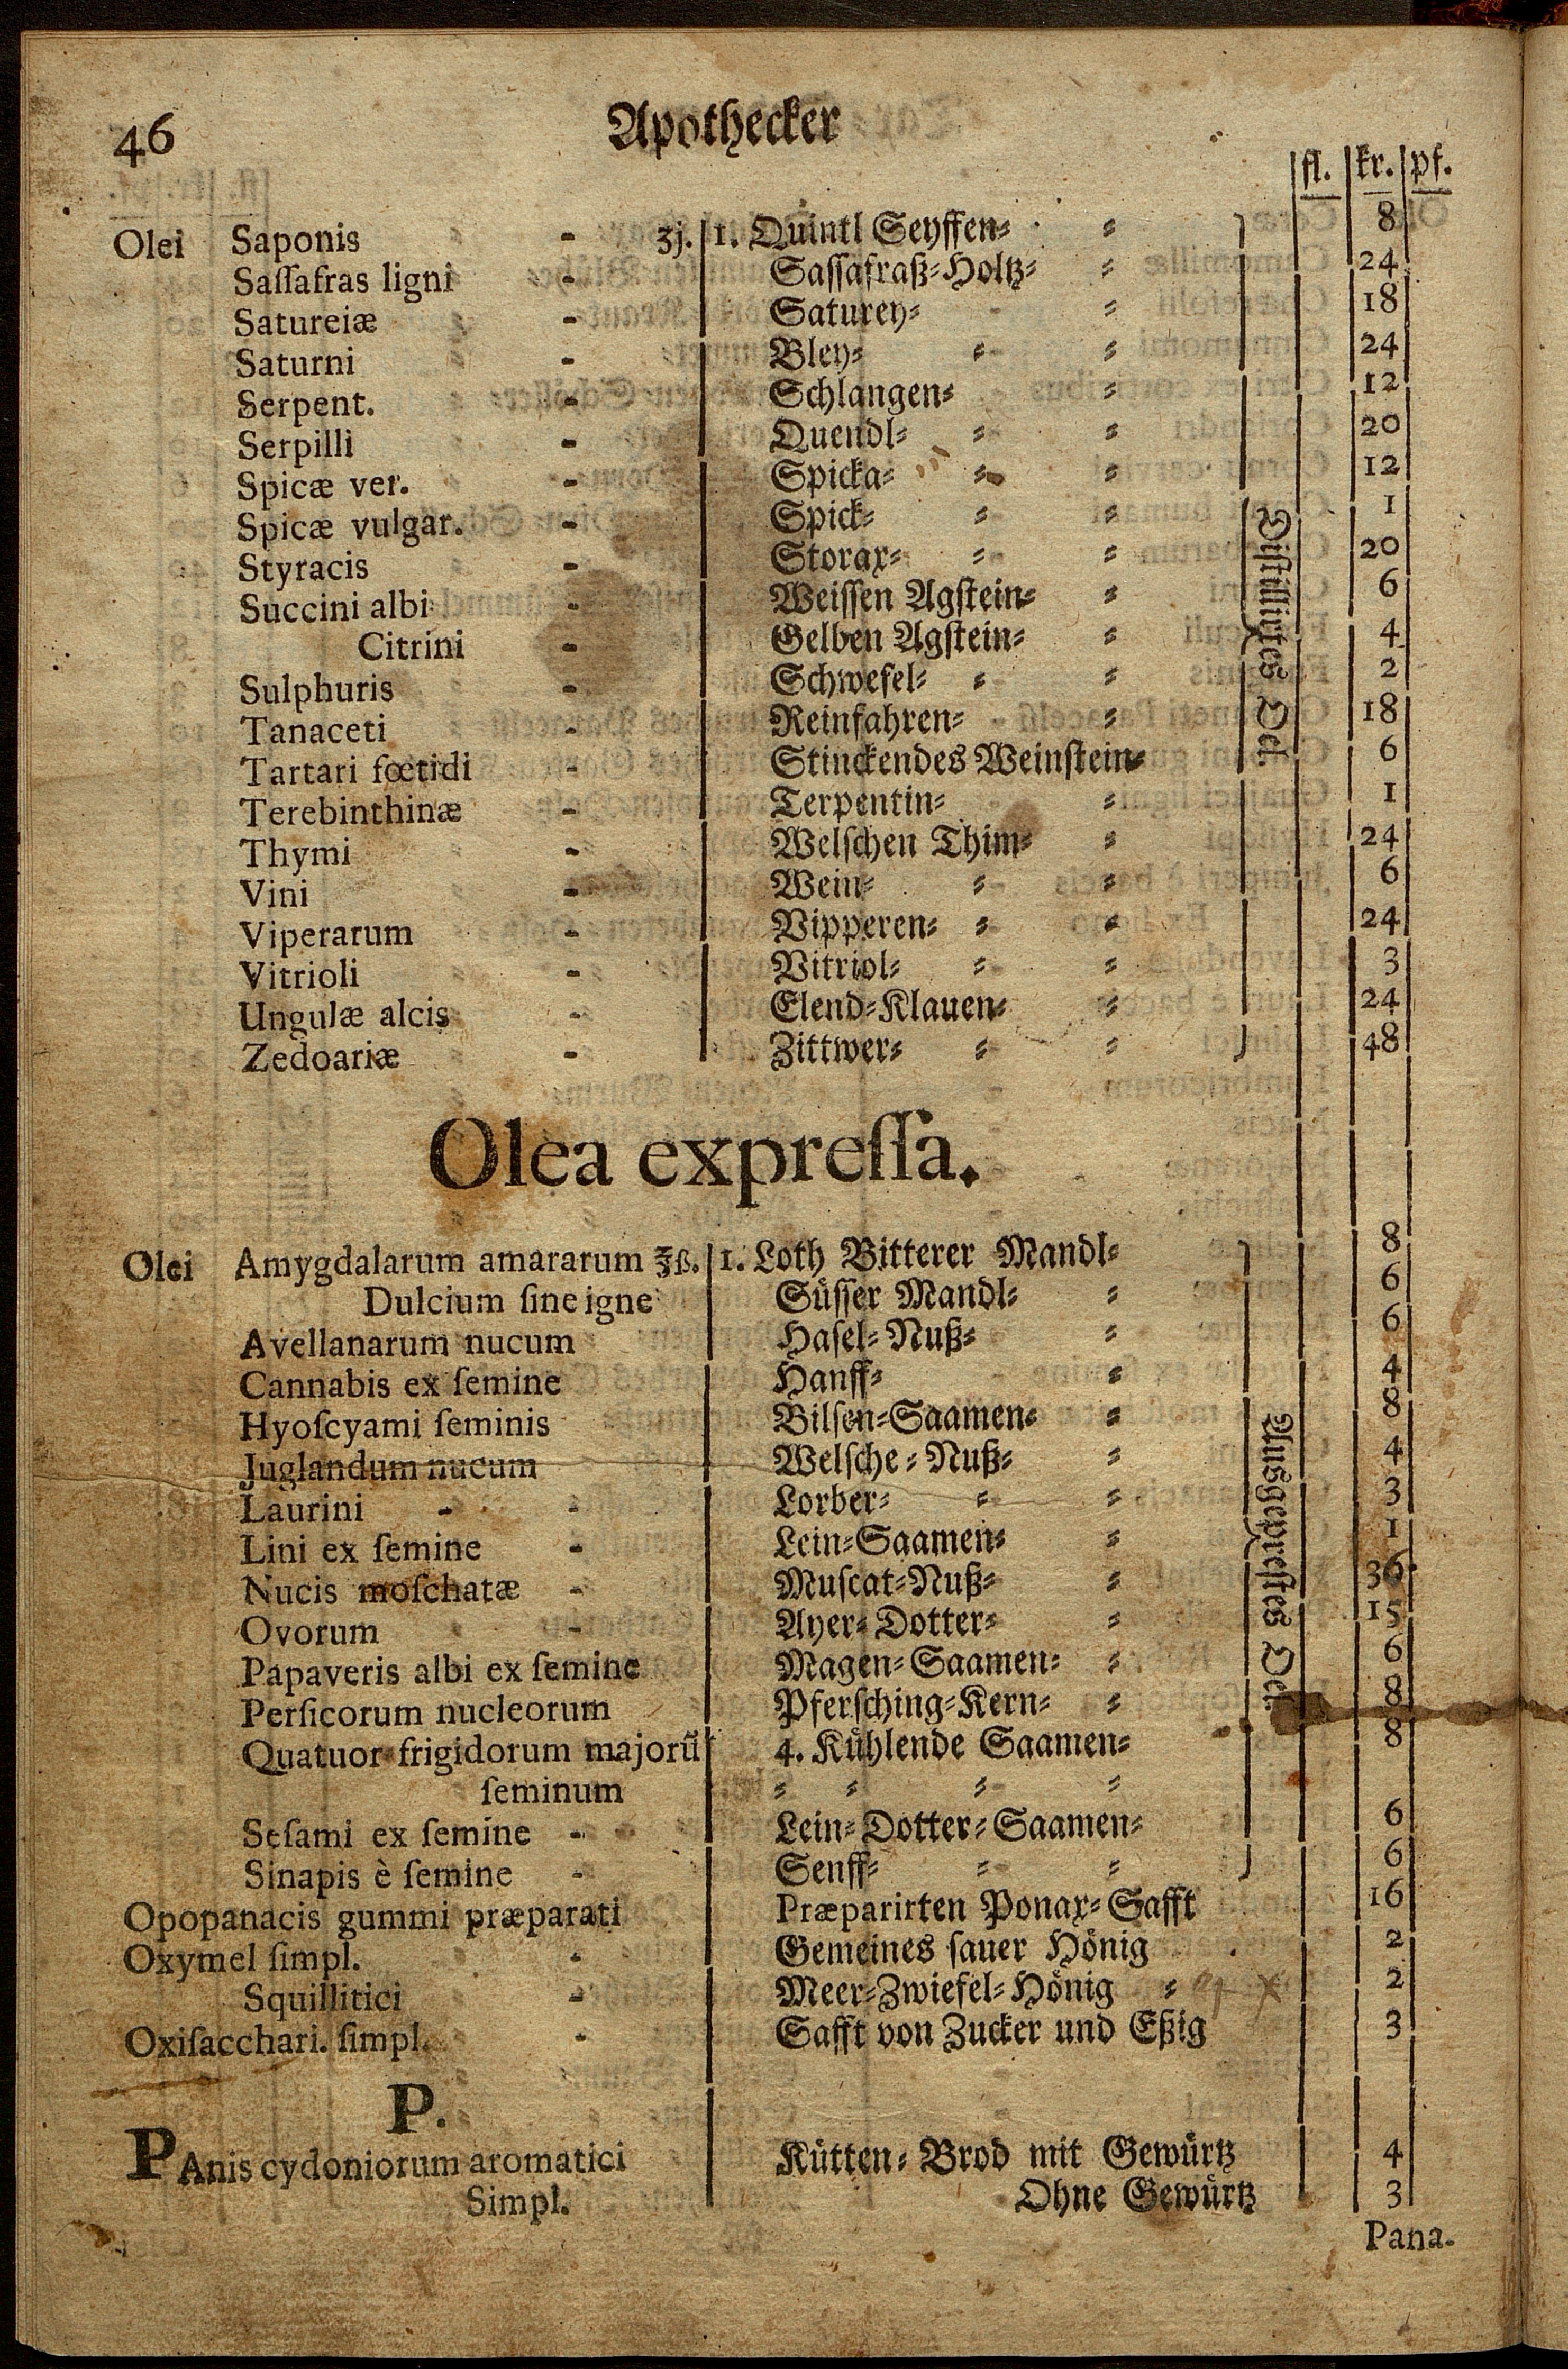 46 Apothecker
fl. kr. pf.
Olei Saponis - ʒj. 1. Quintl Seyffen⸗ ⸗ 8
Saſſafras ligni - Saſſafraß⸗Holtz⸗ ⸗ 24
Satureiæ - Saturey⸗ ⸗ 18
Saturni - Bley⸗ ⸗ ⸗ 24
Serpent. - Schlangen⸗ ⸗ 12
Serpilli - Quendl⸗ ⸗ ⸗ 20
Spicæ ver. - Spicka⸗ ⸗ ⸗ 12
Spicæ vulgar. - Spick⸗ ⸗ ⸗ 1
Styracis - Storax⸗ ⸗ ⸗ 20
Succini albi - Weiſſen Agſtein⸗ ⸗ 6
Citrini - Gelben Agſtein⸗ ⸗ 4
Sulphuris - Schwefel⸗ ⸗ ⸗ 2
Tanaceti - Reinfahren⸗ ⸗ 18
Tartari fœtidi - Stinckendes Weinſtein⸗ 6
Terebinthinæ - Terpentin⸗ ⸗ 1
Thymi - Welſchen Thim⸗ ⸗ 24
Vini - Wein⸗ ⸗ ⸗ 6
Viperarum - Vipperen⸗ ⸗ ⸗ 24
Vitrioli - Vitriol⸗ ⸗ ⸗ 3
Ungulæ alcis - Elend⸗Klauen⸗ ⸗ 24
Zedoariæ - Zittwer⸗ ⸗ ⸗ 48
Diſtillirtes Oel.
Olea expreſſa.
Olei Amygdalarum amararum ℥ß. 1. Loth Bitterer Mandl⸗ 8
Dulcium ſine igne Süſſer Mandl⸗ ⸗ 6
Avellanarum nucum Haſel⸗Nuß⸗ ⸗ 6
Cannabis ex ſemine Hanff⸗ ⸗ 4
Hyoſcyami ſeminis Bilſen⸗Saamen⸗ ⸗ 8
Juglandum nucum Welſche⸗Nuß⸗ ⸗ 4
Laurini - - Lorber⸗ ⸗ ⸗ 3
Lini ex ſemine - Lein⸗Saamen⸗ ⸗ 1
Nucis moſchatæ - Muſcat⸗Nuß⸗ ⸗ 36
Ovorum - Ayer⸗Dotter⸗ ⸗ 15
Papaveris albi ex ſemine Magen⸗Saamen⸗ ⸗ 6
Perſicorum nucleorum Pferſching⸗Kern⸗ ⸗ 8
Quatuor frigidorum majorũ 4. Kühlende Saamen⸗ 8
ſeminum ⸗ ⸗ ⸗ ⸗
Seſami ex ſemine - Lein⸗Dotter⸗Saamen⸗ 6
Sinapis è ſemine - Senff⸗ ⸗ ⸗ 6
Ausgepreſtes Oel.
Opopanacis gummi præparati Præparirten Ponax⸗Safft 16
Oxymel ſimpl. - Gemeines ſauer Hönig 2
Squillitici - Meer⸗Zwiefel⸗Hönig ⸗ 2
Oxiſacchari. ſimpl. - Safft von Zucker und Eßig 3
P.
PAnis cydoniorum aromatici Kütten⸗Brod mit Gewürtz 4
Simpl. Ohne Gewürtz 3
Pana-